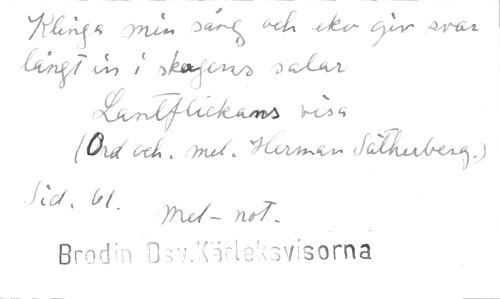 Klinga min sång och eko giv svar
långt in i skogens salar
Lantflickans visa
(Ord och. mel. Herman Sätherberg.)
Sid. 61.
Mel-not.
Brodin Dsv. Kärleksvisorna